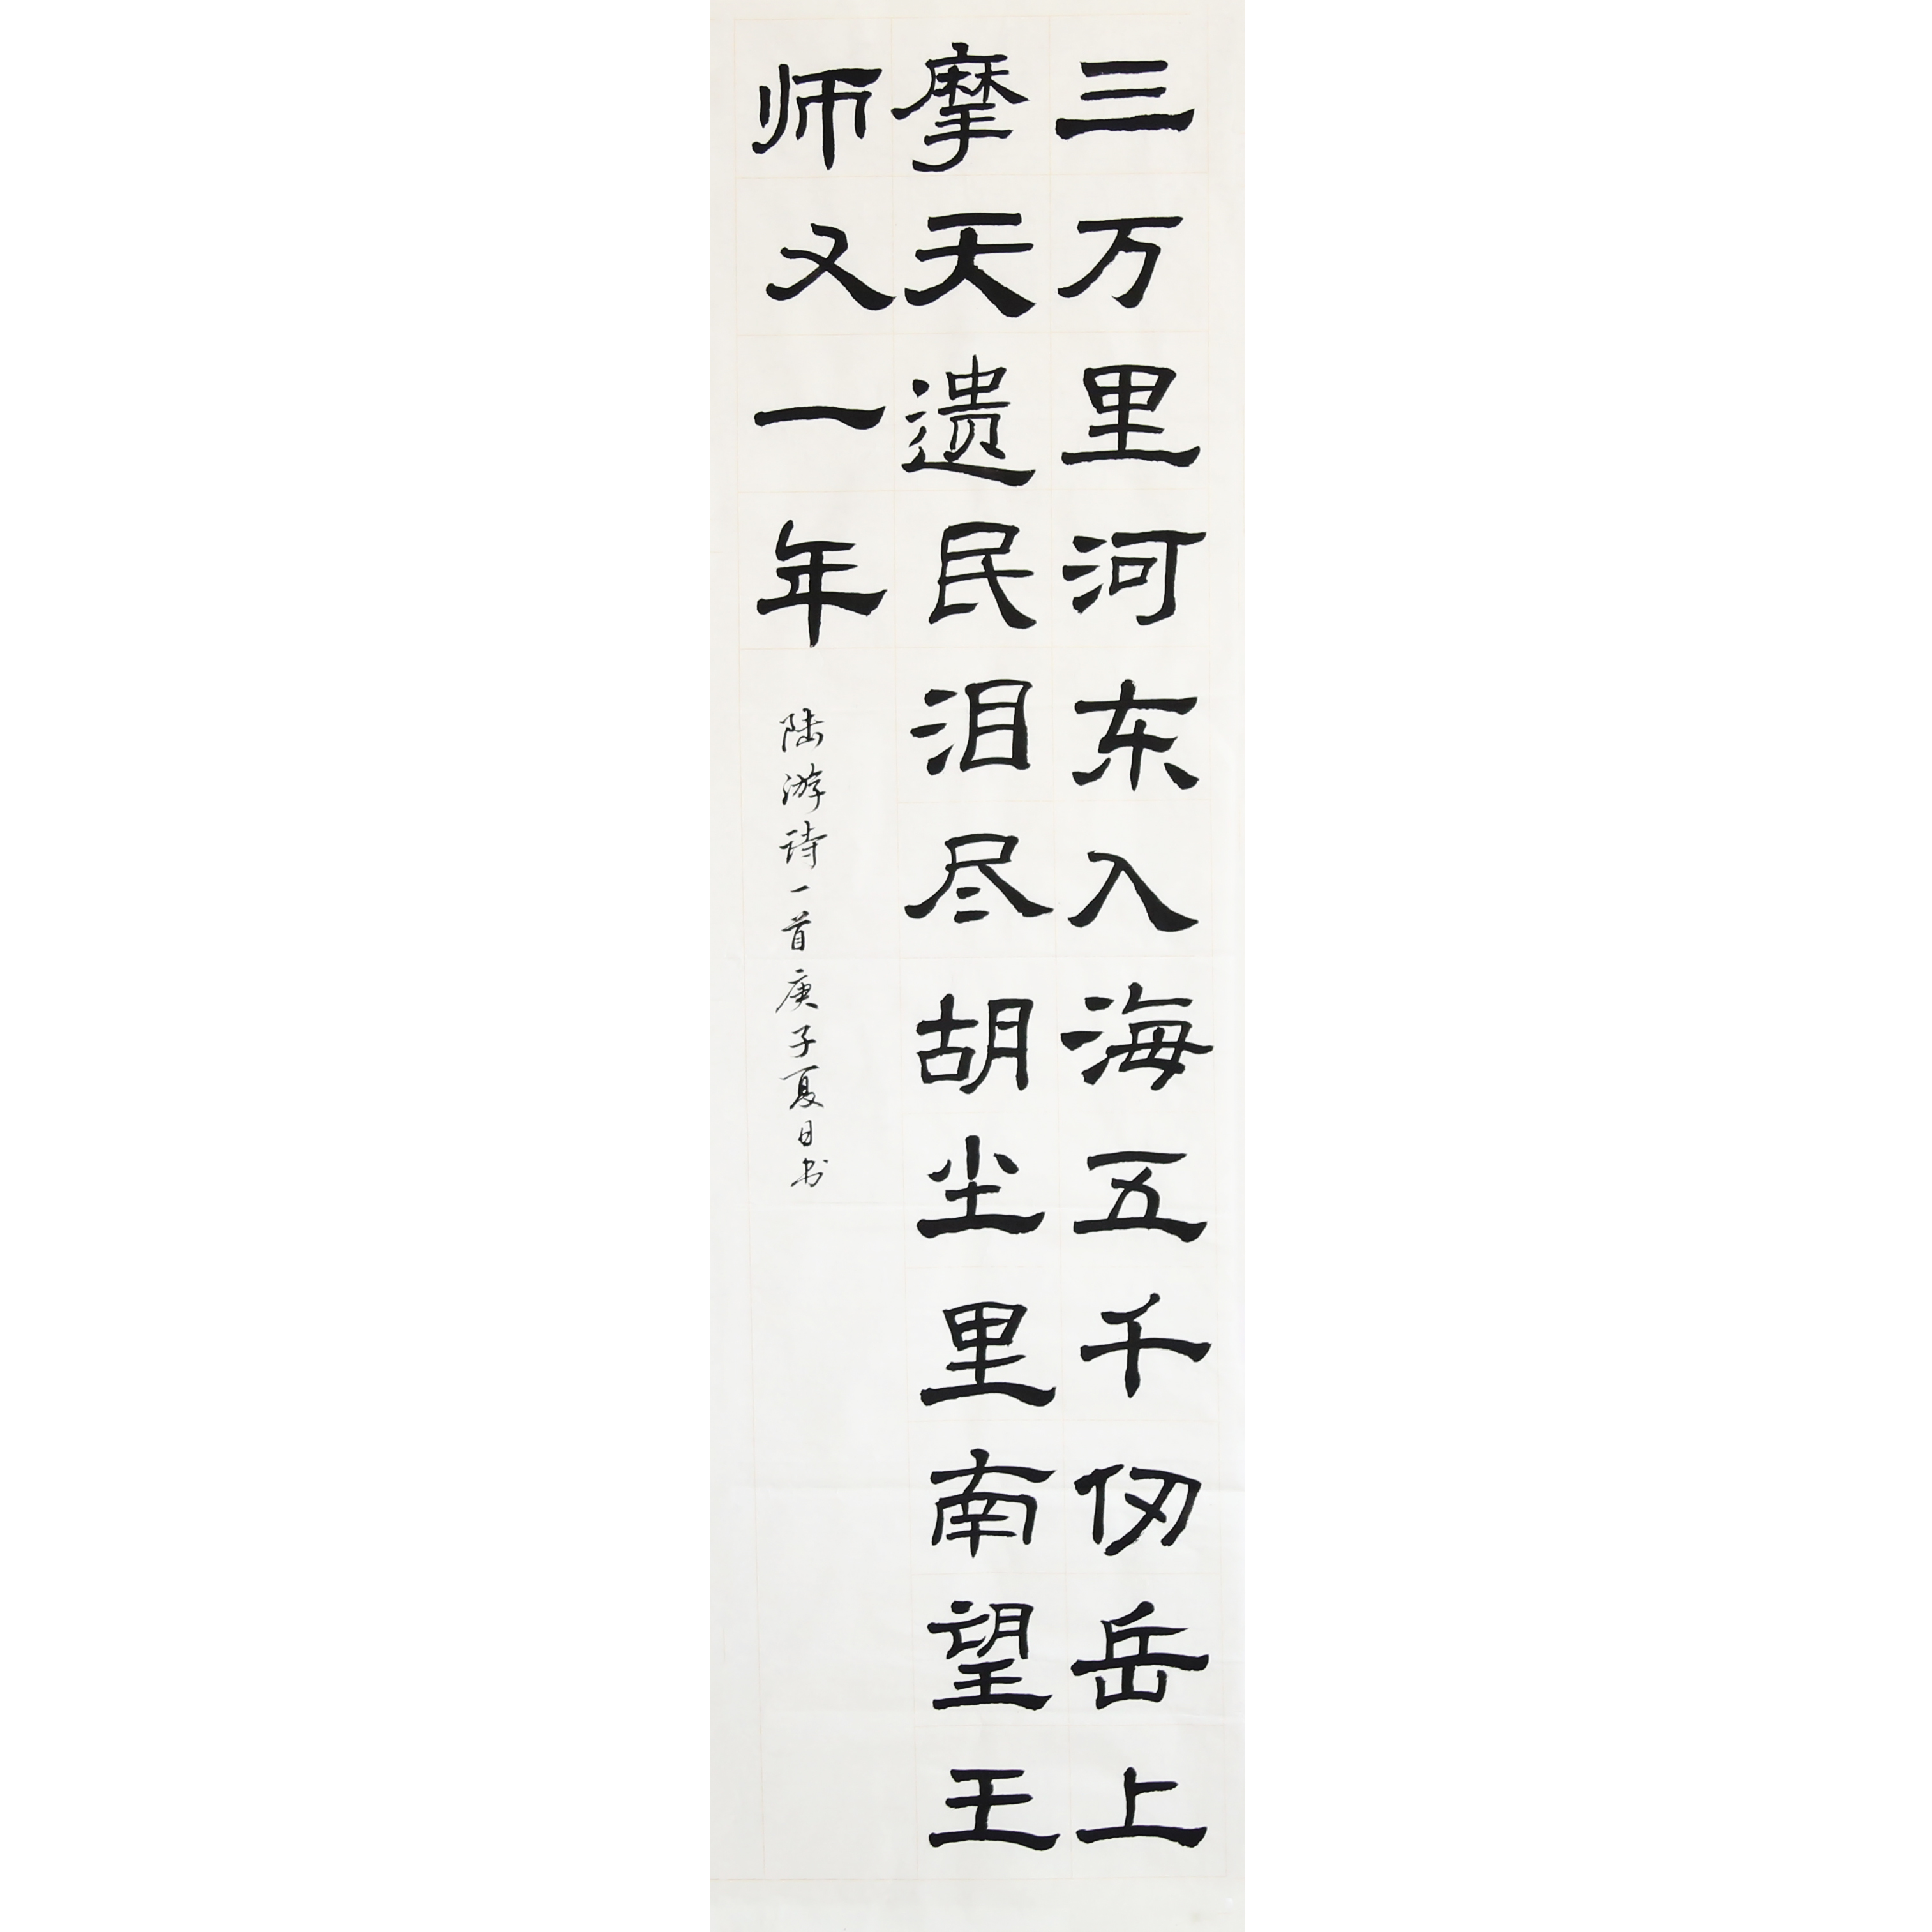 三万里河东入海五千仞岳上
摩天遗民泪尽胡尘里南望王
师又一年
陆游诗一首庚子夏日书